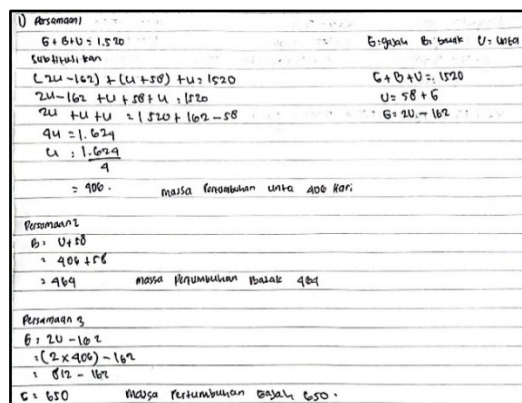 1) Persamaan 1
G + B + U = 1.520
G: gajah B: badak U= Unta
Substitusi kan
(2U - 162) + (U + 58) + U = 1520
G + B + U = 1520
2U - 162 + U + 58 + U = 1520
U = 58 + G
2U + U + U = 1520 + 162 - 58
G = 2U - 162
4U = 1.624
U = 1.624
4
= 406. massa Pertumbuhan unta 406 Hari
Persamaan 2
B = U + 58
= 406 + 58
= 464 massa Pertumbuhan Badak 464
Persamaan 3
G = 2U - 162
= (2 x 406) - 162
= 812 - 162
G = 650 massa Pertumbuhan Gajah 650.